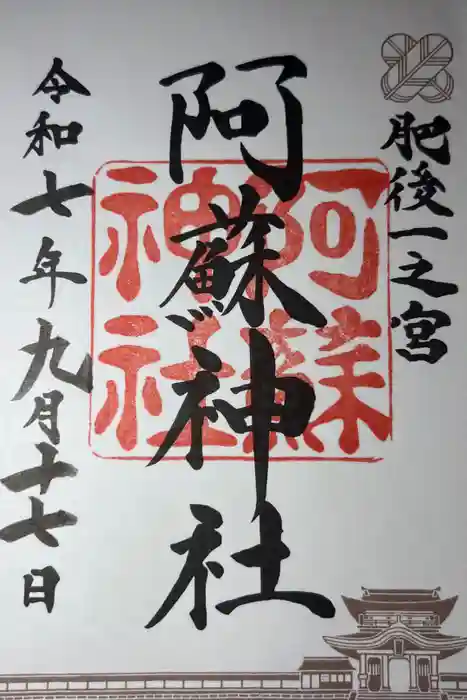 肥後一之宮
阿蘇神社
令和七年九月十七日
阿蘇
神社